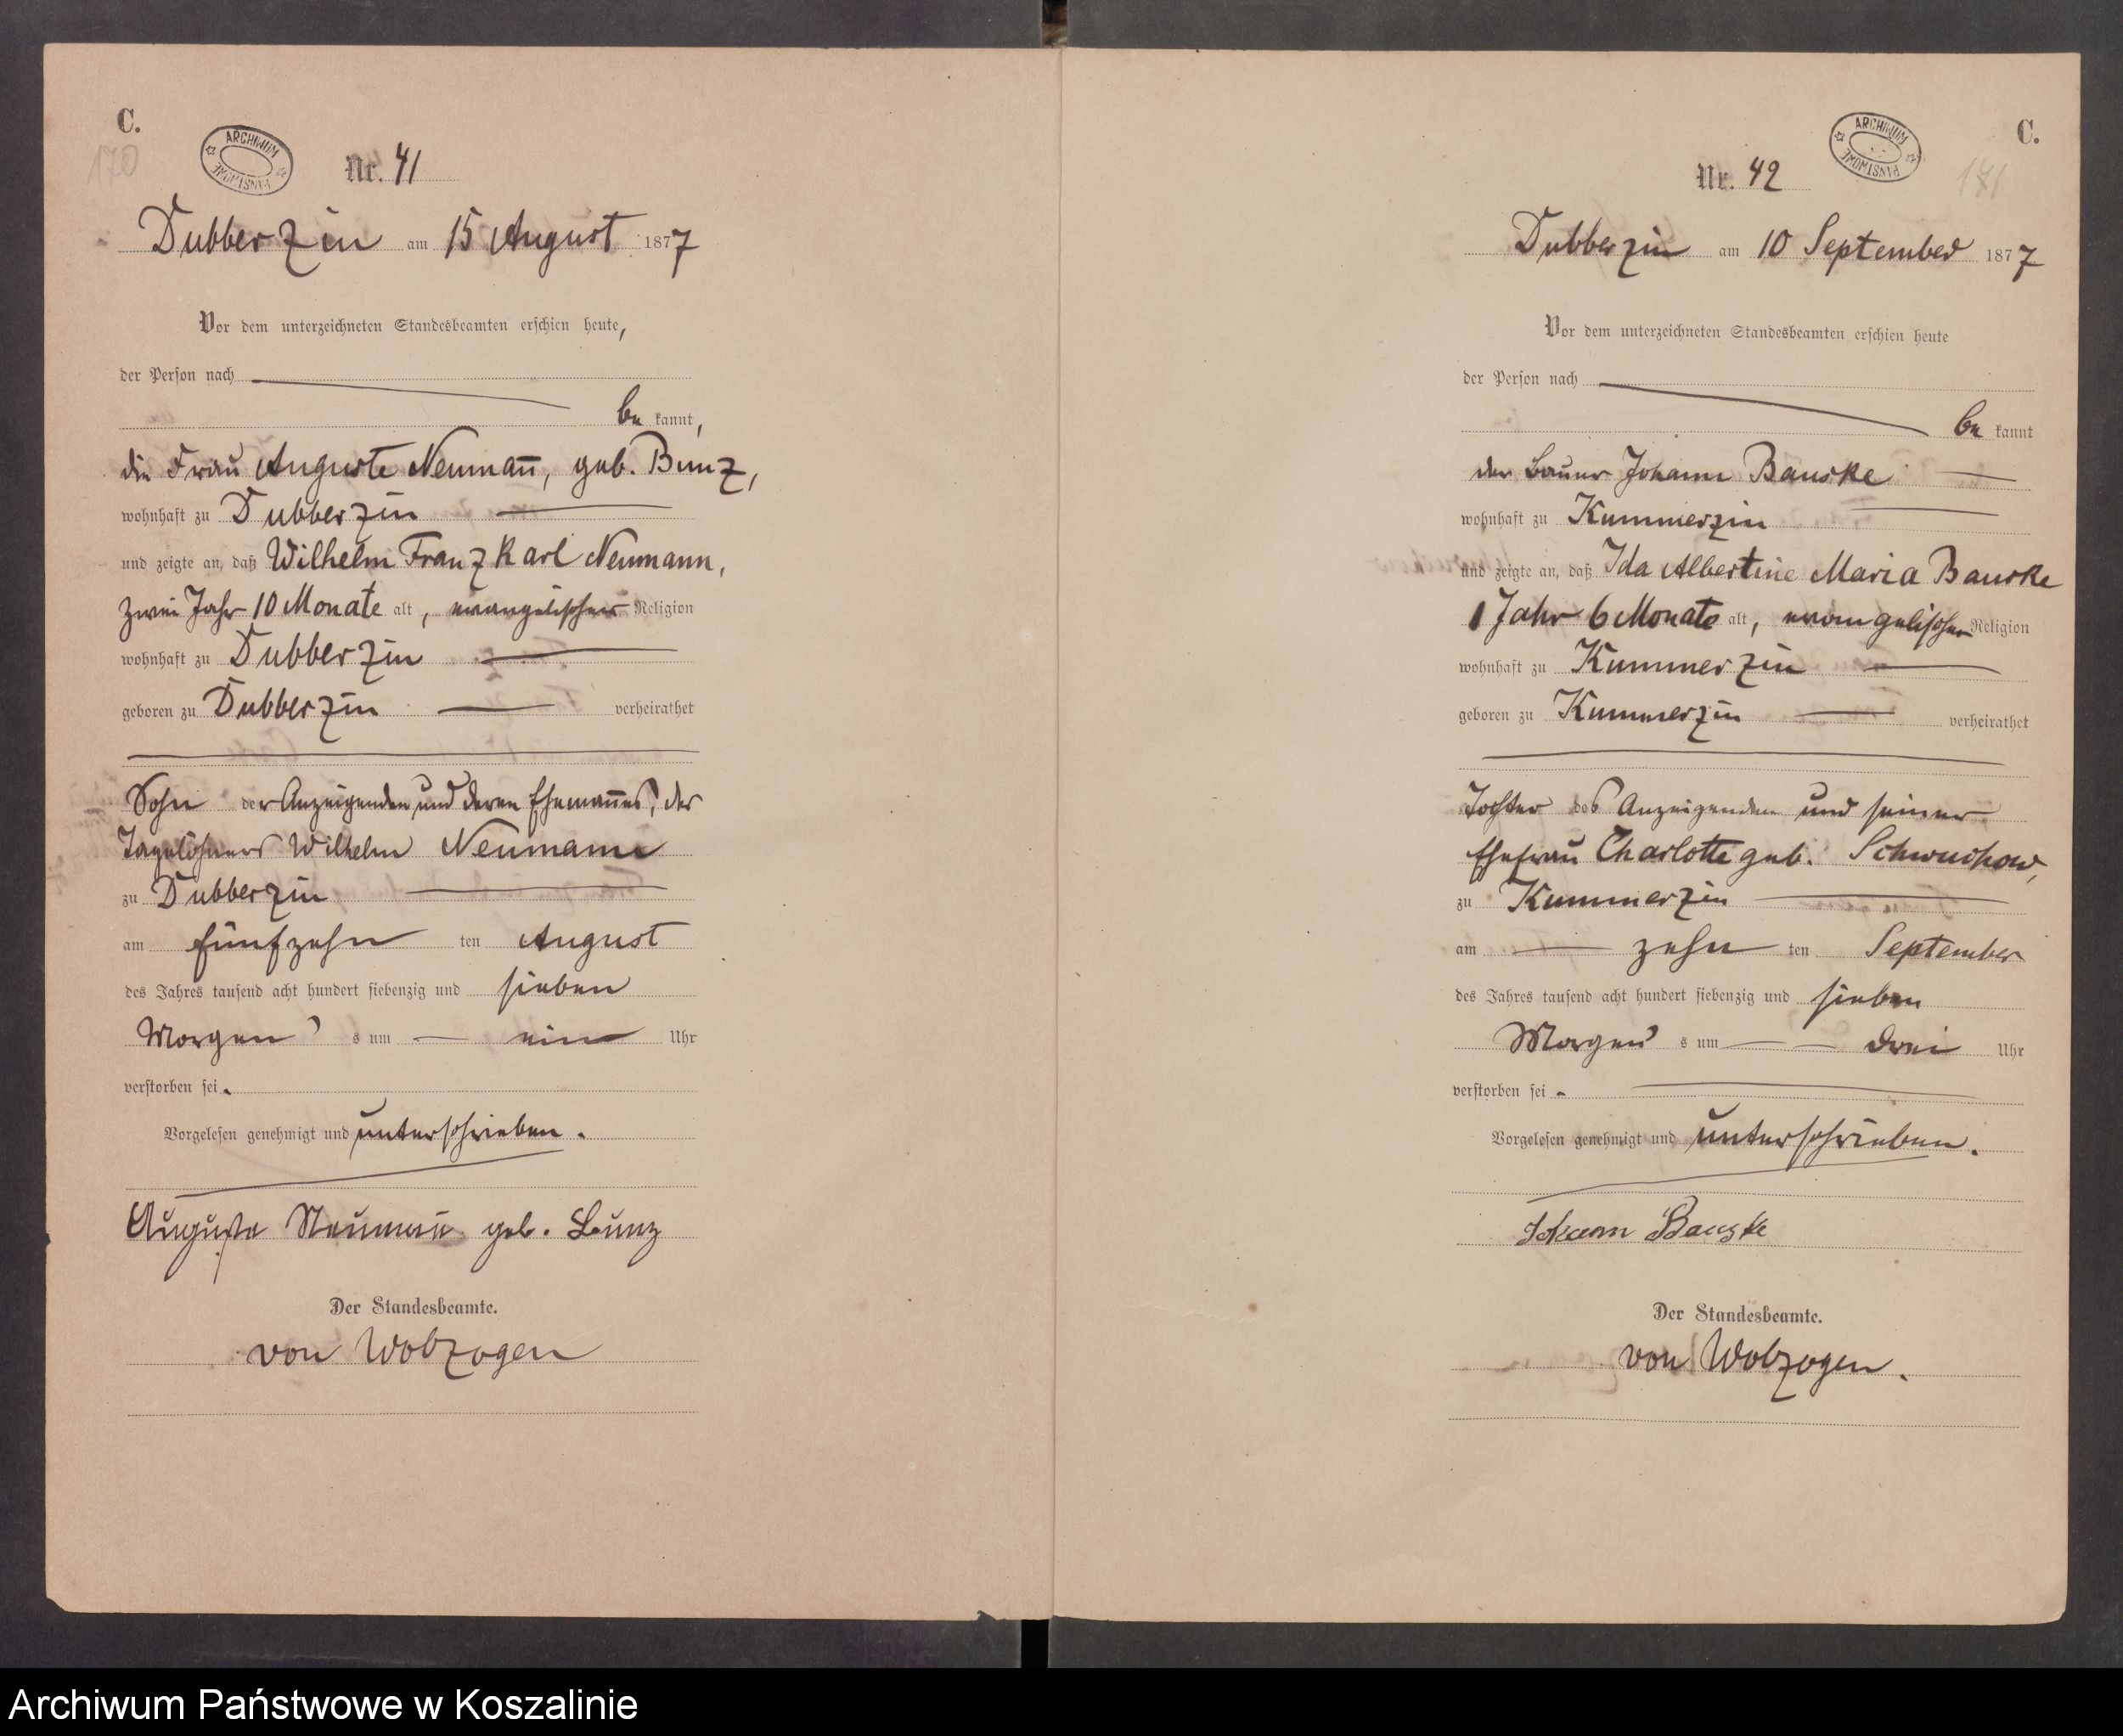 C.
170
ARCHIWUM PAŃSTWOWE
Nr. 41
Dubberzin am 15 August 1877
Vor dem unterzeichneten Standesbeamten erschien heute,
der Person nach
be kannt,
die Frau Auguste Neuman̄, geb. Bunz,
wohnhaft zu Dubberzin
und zeigte an, daß Wilhelm Franz Karl Neumann,
zwei Jahr 10 Monate alt, evangelischer Religion
wohnhaft zu Dubberzin
geboren zu Dubberzin verheirathet
Sohn der Anzeigenden und deren Eheman̄es, des
Tagelöhners Wilhelm Neumann
zu Dubberzin
am fünfzehn ten August
des Jahres tausend acht hundert siebenzig und sieben
Morgen s um ein Uhr
verstorben sei.
Vorgelesen genehmigt und unterschrieben.
Auguste Neuman̄ geb. Bunz
Der Standesbeamte.
von Wobzogen
C.
171
ARCHIWUM PAŃSTWOWE
Nr. 42
Dubberzin am 10 September 1877
Vor dem unterzeichneten Standesbeamten erschien heute
der Person nach
be kannt
der Bauer Johann Bauske
wohnhaft zu Kummerzin
und zeigte an, daß Ida Albertine Maria Bauske
1 Jahr 6 Monate alt, evangelischer Religion
wohnhaft zu Kummerzin
geboren zu Kummerzin verheirathet
Tochter des Anzeigenden und seiner
Ehefrau Charlotte geb. Schwuchow,
zu Kummerzin
am zehn ten September
des Jahres tausend acht hundert siebenzig und sieben
Morgens s um drei Uhr
verstorben sei.
Vorgelesen genehmigt und unterschrieben.
Johann Bauske
Der Standesbeamte.
von Wobzogen.
Archiwum Państwowe w Koszalinie